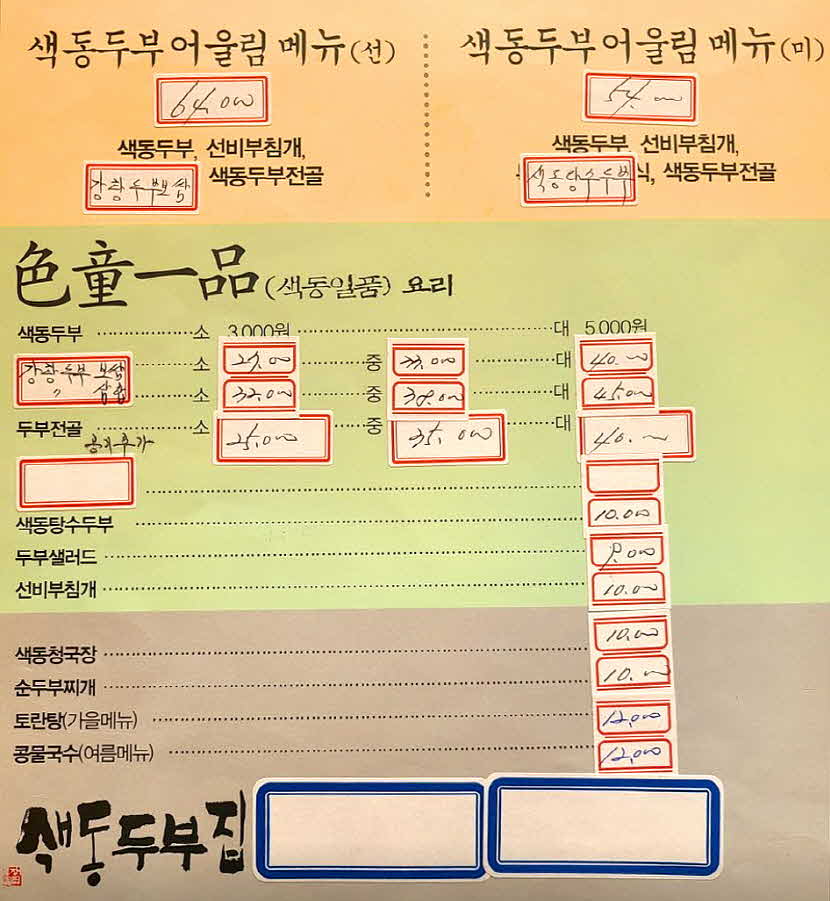 색동두부어울림 메뉴(선)
64,000
색동두부, 선비부침개,
강황두부보쌈 색동두부전골
색동두부어울림 메뉴(미)
54,000
색동두부, 선비부침개,
색동탕수두부 식, 색동두부전골
色童一品(색동일품) 요리
색동두부 소 3,000원 대 5,000원
강황두부 보쌈 소 27,000 중 33,000 대 40,000
〃 삼합 소 32,000 중 38,000 대 45,000
두부전골 소 25,000 중 35,000 대 40,000
공기추가
색동탕수두부 10,000
두부샐러드 9,000
선비부침개 10,000
색동청국장 10,000
순두부찌개 10,000
토란탕(가을메뉴) 12,000
콩물국수(여름메뉴) 12,000
색동두부집